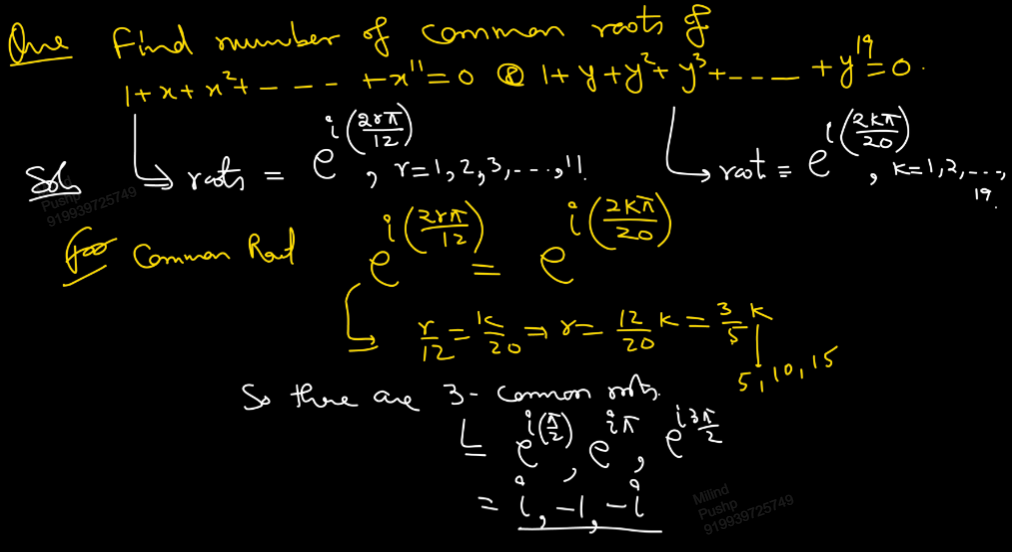 Que Find number of common roots of
1+x+x²+ - - - +x¹¹=0 & 1+y+y²+y³+ - - - - +y¹⁹=0.
Sol. → roots = e^{i(2rπ/12)}, r=1,2,3,...,11. → root = e^{i(2kπ/20)}, k=1,2,...,19.
For Common Root e^{i(2rπ/12)} = e^{i(2kπ/20)}
r/12 = k/20 ⇒ r = 12/20 k = 3/5 k
5, 10, 15
So there are 3- common roots.
e^{i(π/2)}, e^{iπ}, e^{i3π/2}
= i, -1, -i
Pushp
919939725749
Milind
Pushp
919939725749